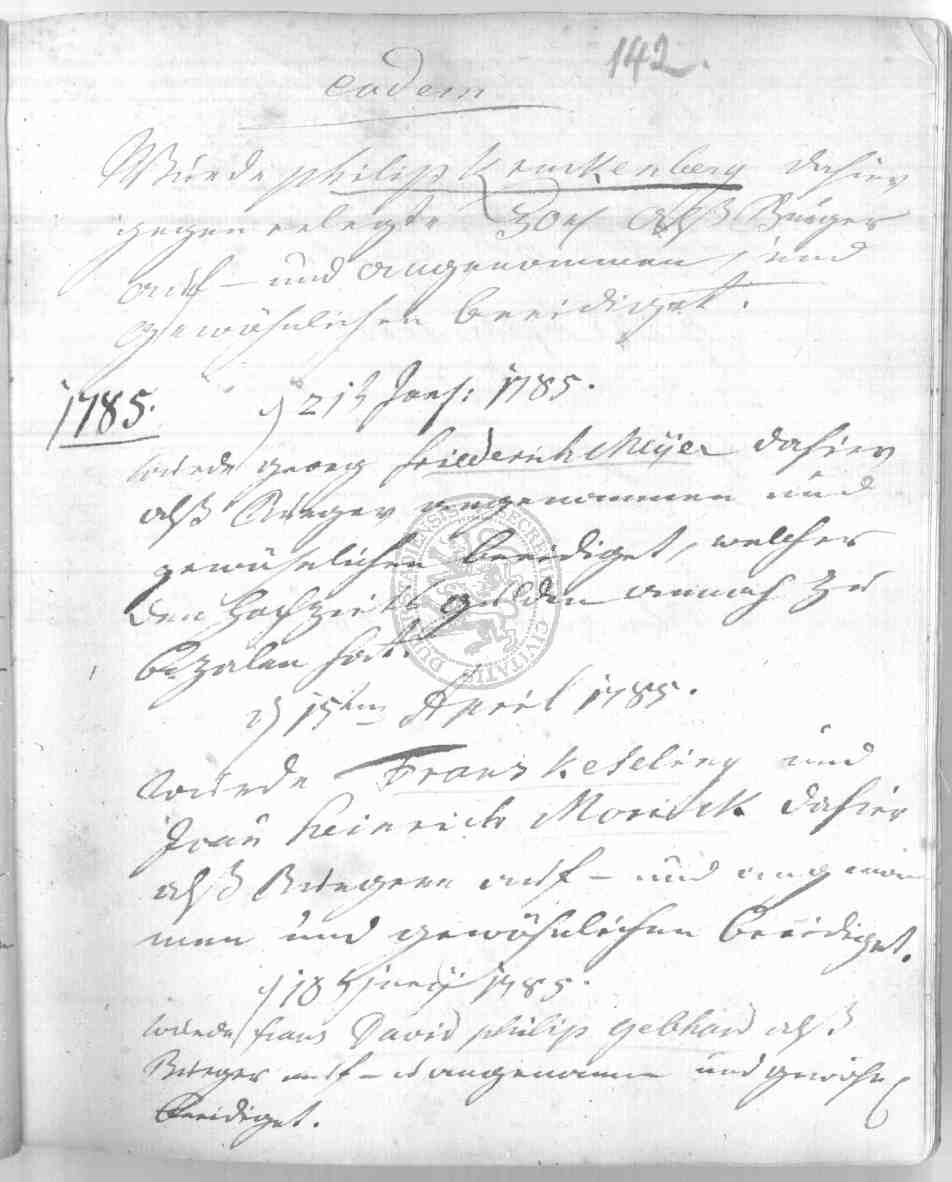 142.
eadem
Wurde philip Kronckenberg dahier
gegen erlegte 30 alß Burger
auf- und angenommen, und
gewöhnlichen beeidiget.
1785. d 21t Jan: 1785.
wurde georg friederich Meÿer dahier
alß Burger angenommen und
gewöhnlichen beeidiget, welcher
den gulden annoch zu
bezalen hat.
d 15ten April 1785.
wurde Franz Keseling und
Joan heinrich dahier
alß Burgere auf- und angenom
men und gewöhnlichen beeidiget.
d 18t junÿ 1785.
wurde frans David philip gebhard alß
Burger auf- u angenomm und gewöhnl
beeidiget.